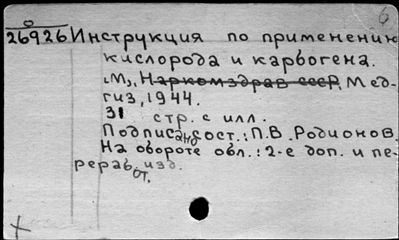 6
26926 Инструкция по применению
кислорода и карбогена.
М., Наркомздрав СССР, Мед-
гиз, 1944.
31 стр. с илл.
Подписано: сост.: П.В. Родионов.
На обороте обл.: 2-е доп. и пе-
рераб. изд.
от.